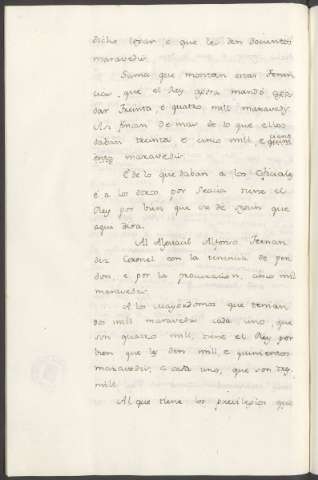 dicho logar e que le den docientos
maravedis.
Suma que montan estas Tenen
cias, que el Rey agora mandó
dar Treinta, e quatro, mill maravedis.
Asi fincan de mas de lo que ellos
daban treinta, e cinco mill, e
maravedis.
E de lo que daban a los Oficiales
é a los otros por gracia tiene el
Rey por bien que se de segun que
aqui dira.
Al Alguacil Alfonso Fernan
dez Coronel con la tenencia de pen
don, e por la procuracion, cinco mil
maravedis.
A los mayordomos que tenian
dos mill maravedis cada uno, que
son quatro mill, tiene el Rey por
bien que les den mill, e quinientos
maravedis, a cada uno, que son tres
mill.
Al que tiene los previlegios que